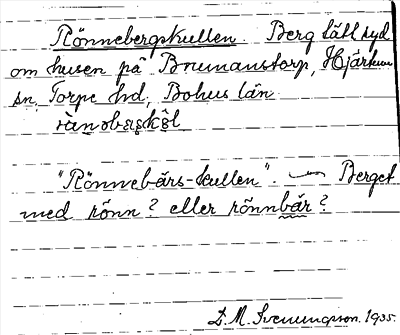 Rönnebergskullen. Berg tätt syd
om husen på Brumanstorp, Hjärtum
sn, Torpe hd, Bohus län.
"Rönnebärs-kullen". — Berget
med rönn? eller rönnbär?
D. M. Svenungsson. 1935.